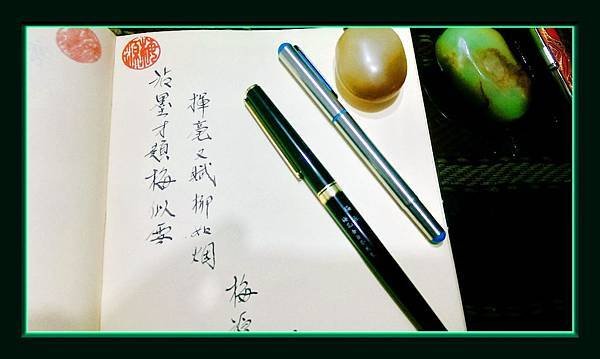 沾墨才題梅似雪
揮毫又賦柳如烟
梅